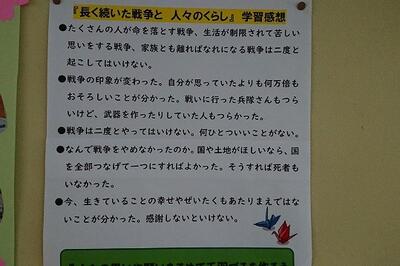 『長く続いた戦争と 人々のくらし』 学習感想
●たくさんの人が命を落とす戦争、生活が制限されて苦しい
思いをする戦争、家族とも離ればなれになる戦争は二度と
起こしてはいけない。
●戦争の印象が変わった。自分が思っていたよりも何万倍も
おそろしいことが分かった。戦いに行った兵隊さんもつら
いけど、武器を作ったりしていた人もつらかった。
●戦争は二度とやってはいけない。何ひとついいことがない。
●なんで戦争をやめなかったのか。国や土地がほしいなら、国
を全部つなげて一つにすればよかった。そうすれば死者も
いなかった。
●今、生きていることの幸せやぜいたくもあたりまえではな
いことが分かった。感謝しないといけない。